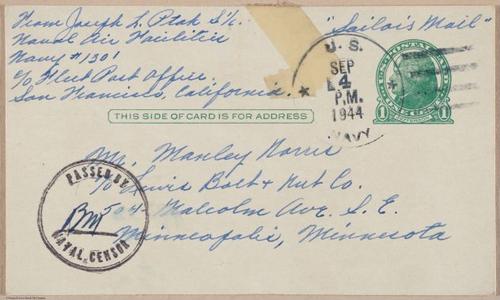 From Joseph L. Ptak S 1/c.
Naval Air Facilities
Navy #1301
c/o Fleet Post Office.
San Francisco, California.
"Sailor's Mail"
U. S.
SEP
4
P.M.
1944
NAVY
THIS SIDE OF CARD IS FOR ADDRESS
1 1
Mr. Manley Norris
c/o Lewis Bolt & Nut Co.
504 Malcolm Ave. S. E.
Minneapolis, Minnesota
PASSED BY
NAVAL CENSOR